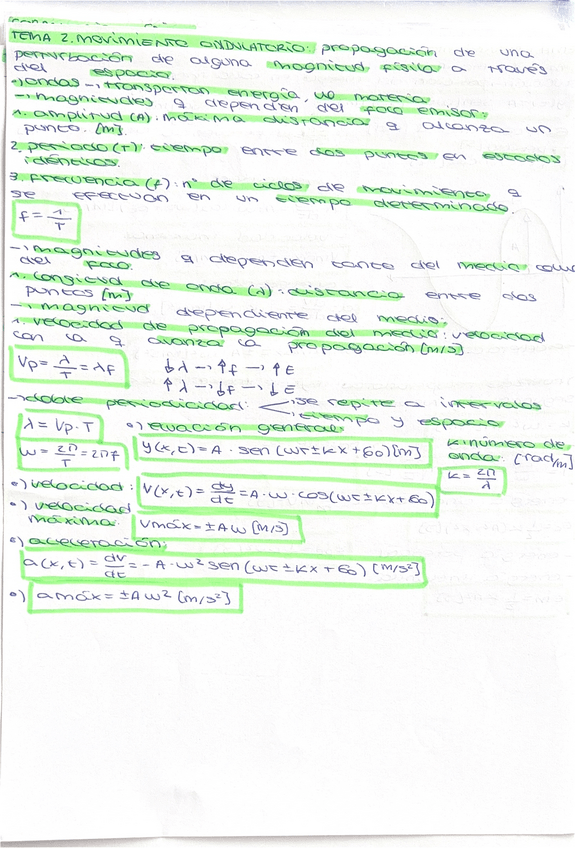 TEMA 2. MOVIMIENTO ONDULATORIO: propagación de una
perturbación de alguna magnitud física a través
del espacio.
→ ondas → transportan energía, no materia
→ magnitudes q dependen del foco emisor:
1. amplitud (A): máxima distancia q alcanza un
punto. [m].
2. periodo (T): tiempo entre dos puntos en estados
idénticos.
3. frecuencia (f): nº de ciclos de movimiento q
se efectúan en un tiempo determinado.
f = 1/T
→ magnitudes q dependen tanto del medio como
del foco.
1. longitud de onda (λ): distancia entre dos
puntos [m]
→ magnitud dependiente del medio:
1. velocidad de propagación del medio: velocidad
con la q avanza la propagación [m/s]
Vp = λ/T = λf ↓λ → ↑f → ↑E
↑λ → ↓f → ↓E
→ doble periodicidad: se repite a intervalos
tiempo y espacio
λ = Vp · T •) ecuación general:
ω = 2π/T = 2πf y(x,t) = A · sen (ωt ± kx + ϕ0) [m] k: número de
onda. [rad/m]
k = 2π/λ
•) velocidad: v(x,t) = dy/dt = A · ω · cos(ωt ± kx + ϕ0)
•) velocidad
máxima: Vmáx = ± Aω [m/s]
•) aceleración:
a(x,t) = dv/dt = -A · ω² sen (ωt ± kx + ϕ0) [m/s²]
•) amáx = ± Aω² [m/s²]